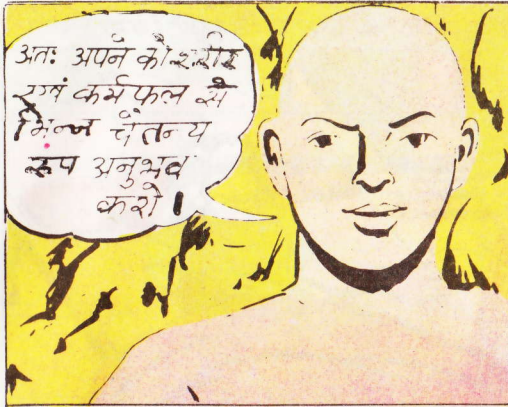 अतः अपने को शरीर
एवं कर्म फल से
भिन्न चैतन्य
रूप अनुभव
करो।